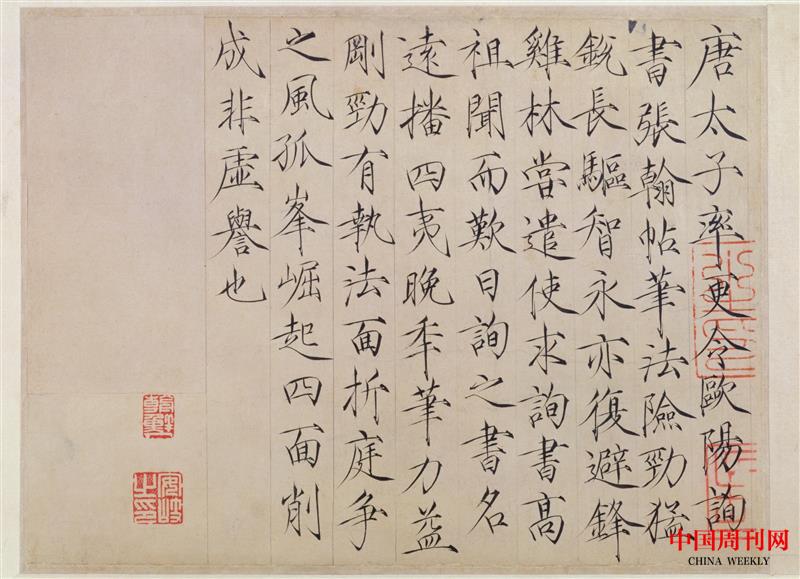 唐太子率更令歐陽詢
書張翰帖筆法險勁猛
銳長驅智永亦復避鋒
雞林嘗遣使求詢書高
祖聞而歎曰詢之書名
遠播四夷晚年筆力益
剛勁有執法面折庭爭
之風孤峯崛起四面削
成非虛譽也
安岐之印
中国周刊网
CHINA WEEKLY